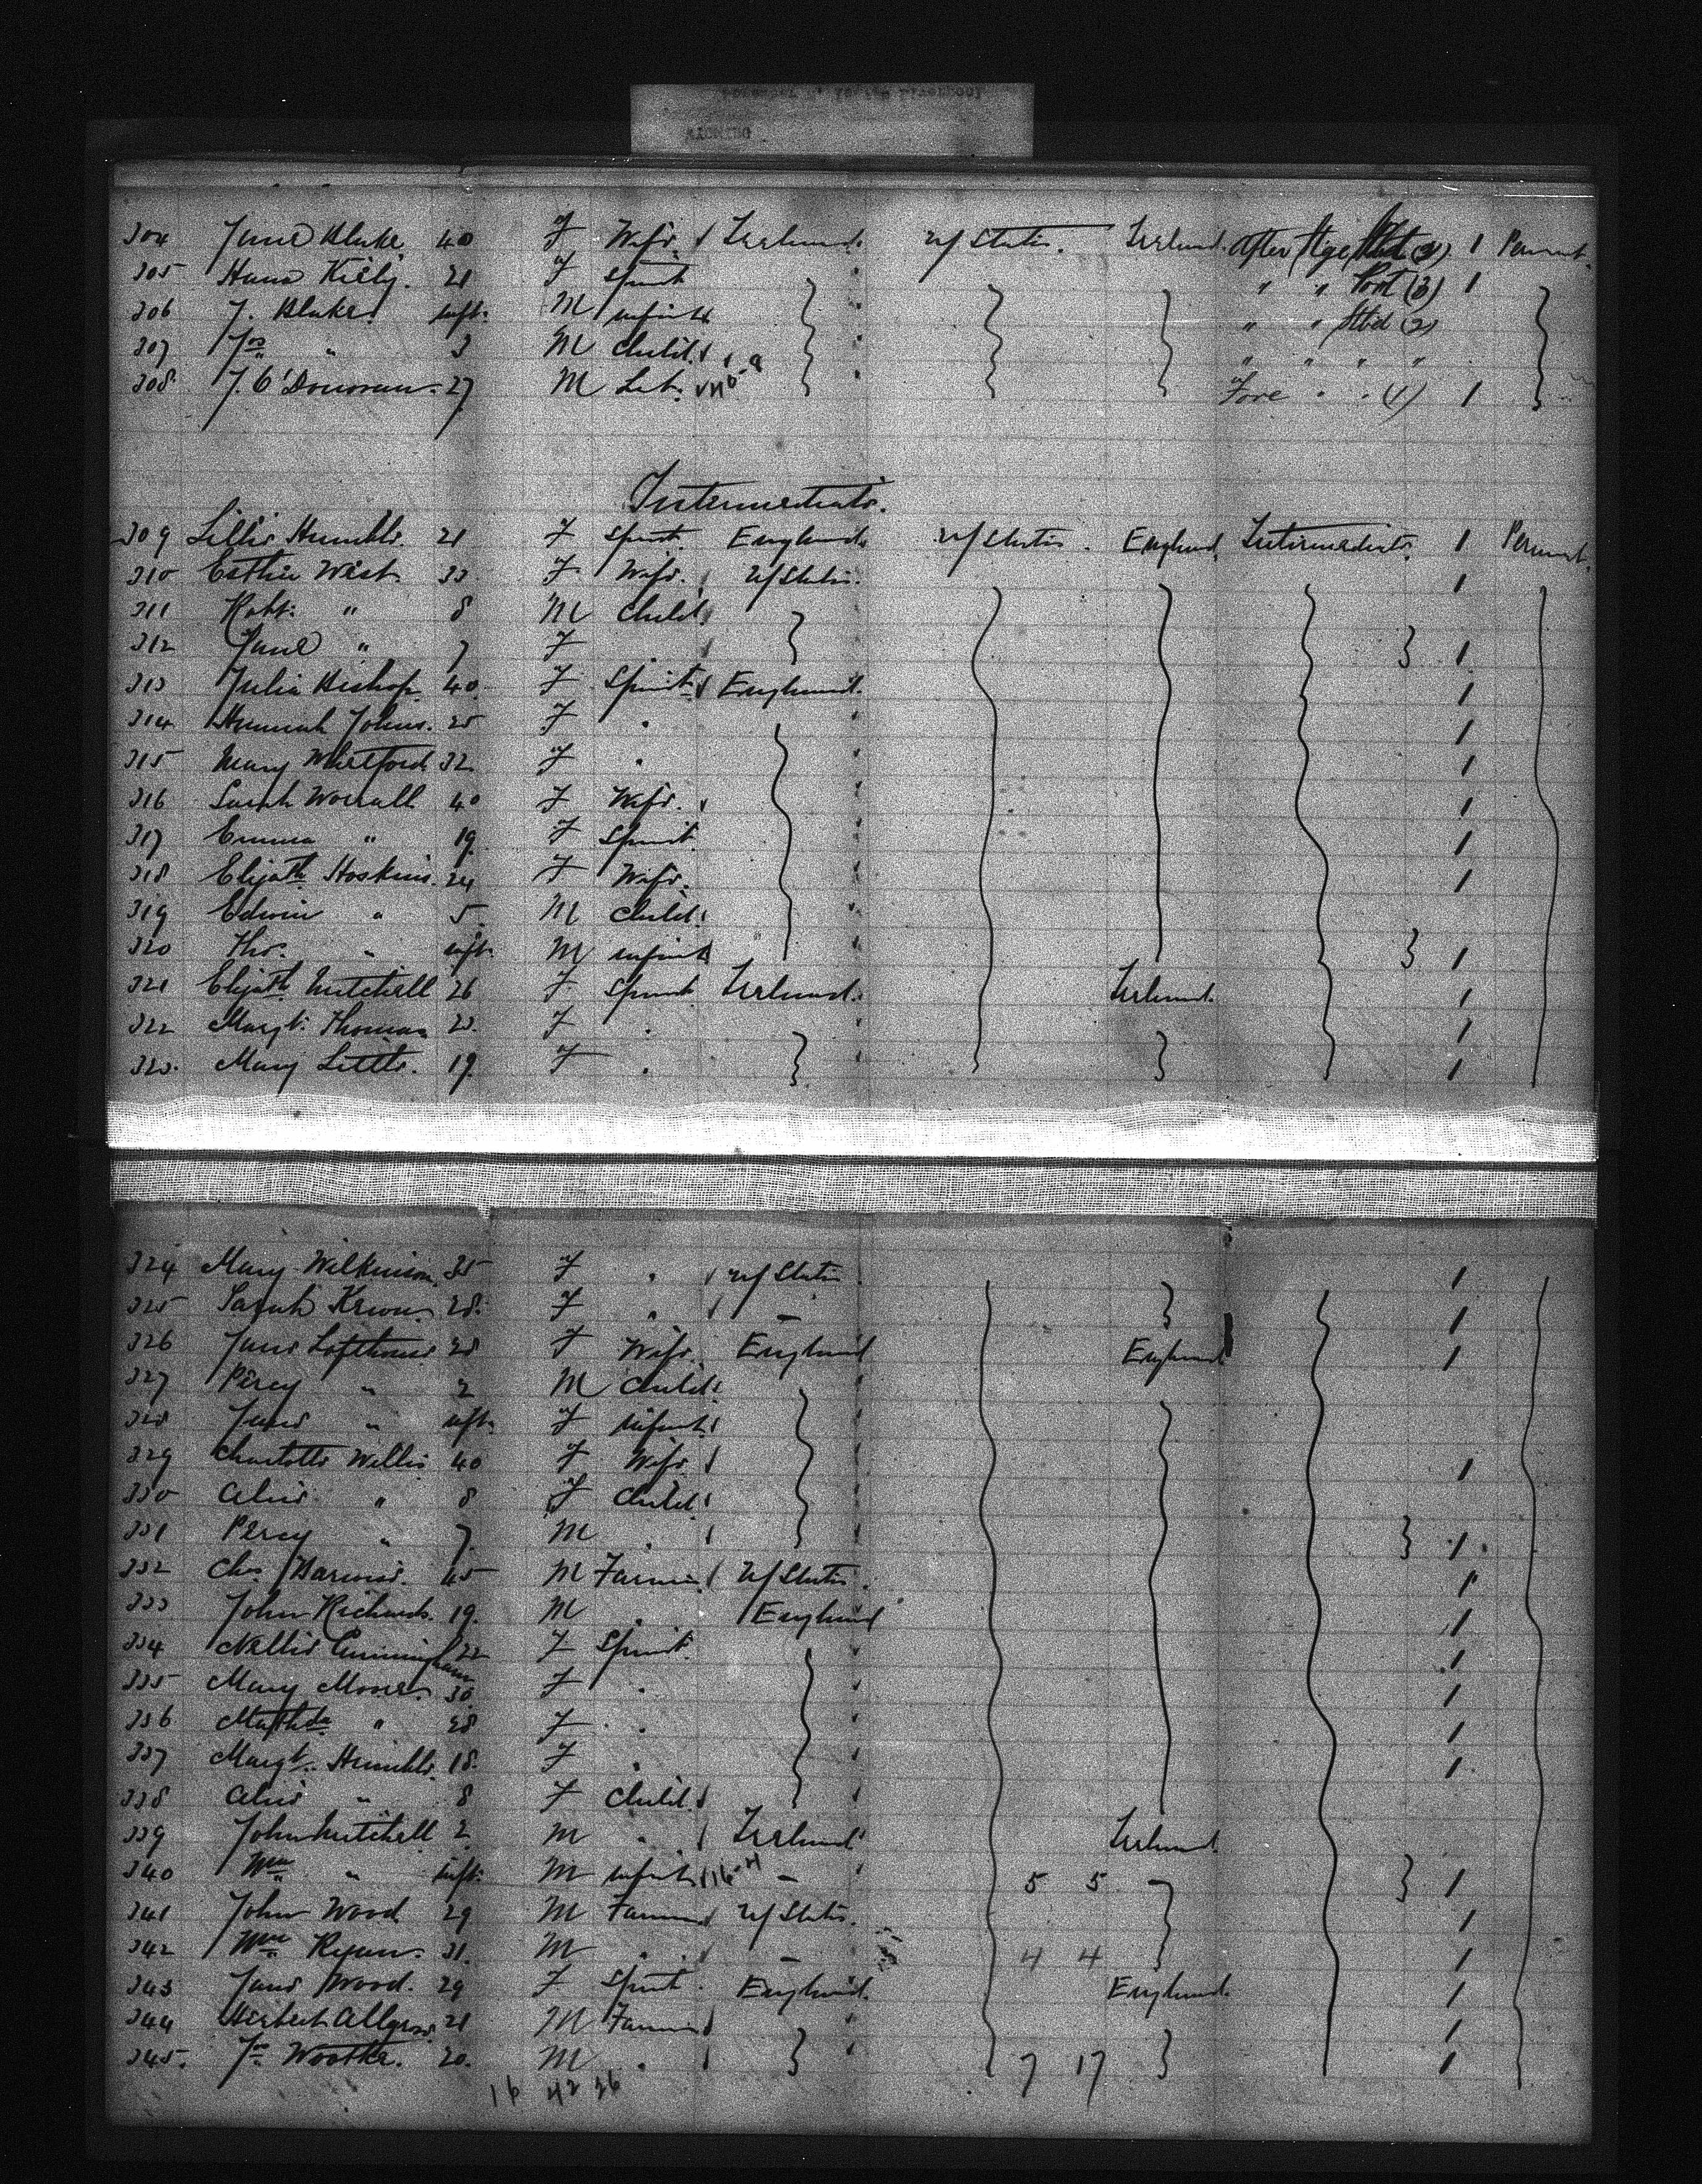 304 Jane Blake 40 F Wife Ireland U/States Ireland After Stge Stbd (2) 1 Permnt.
305 Hana Kiely. 21 F Spinst " " Port (3) 1
306 J. Blake inft. M infant " " Stbd (2)
307 Jno " 3 M Child " " " "
308 J. O'Donovan 27 M Lab. Fore " " (1) 1
Intermediate.
309 Lillie Humble. 21 F Spinst. England U/States. England Intermediate. 1 Permnt.
310 Esther West 33 F Wife. U/States. 1
311 Robt. " 8 M Child
312 Jane " 7 F 1
313 Julia Bishop 40 F Spinst England. 1
314 Hannah Johns. 25 F " 1
315 Mary Whitford 32 F " 1
316 Sarah Worrall 40 F Wife. 1
317 Emma " 19 F Spinst. 1
318 Elizath Hoskins. 24 F Wife. 1
319 Edwin " 5 M Child
320 Tho. " inft. M infant 1
321 Elizath Mitchell 26 F Spinst Ireland. Ireland. 1
322 Margt. Thomas 23. F " 1
323. Mary Little. 19. F " 1
324 Mary Wilkinson 35 F " U/States 1
325 Sarah 28. F " 1
326 Jane Lofthouse 28 F Wife England England 1
327 Percy " 2 M Child
328 Jane " inft. F infant
329 Charlotte Willis 40 F Wife. 1
330 Alice " 8 F Child
331 Percy " 7. M " 1
332 Chas. 45 M Farmer U/States. 1
333 John Richards. 19. M " England 1
334 Nellie Cunningham 22 F Spinst. 1
335 Mary Moore. 30 F " 1
336 Matilda " 28 F " 1
337 Margt. Humble. 18. F " 1
338 Alice " 8 F Child
339 John Mitchell 2 M " Ireland Ireland.
340 Wm " inft. M infant 5 5 1
341 John Wood 29 M Farmer U/States. 1
342 Wm Ryan. 31. M " 4 4 1
343 Jane Wood. 29 F Spinst. England. England. 1
344 Herbert 21 M Farmer 1
345. Jno 20. M " 7 17 1
16 42 26